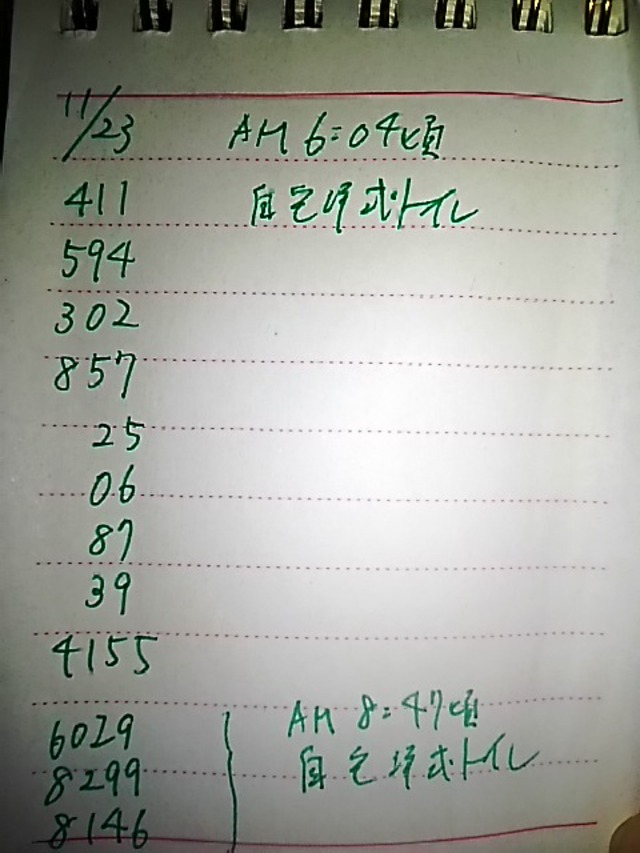 11/23 AM 6:04頃
411 自宅洋式トイレ
594
302
857
25
06
87
39
4155
6029 AM 8:47頃
8299 自宅洋式トイレ
8146